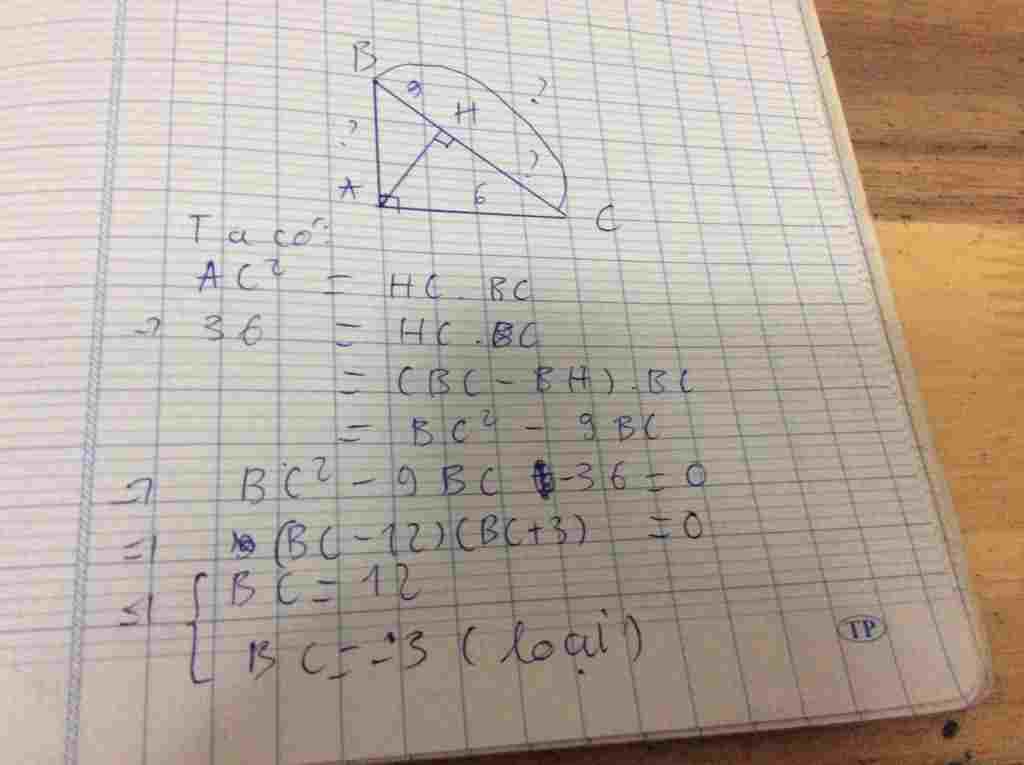 B
9
?
H
?
?
A
6
C
Ta có:
AC² = HC . BC
→ 36 = HC . BC
= (BC - BH) . BC
= BC² - 9BC
→ BC² - 9BC - 36 = 0
=> (BC - 12)(BC + 3) = 0
BC = 12
BC = -3 (loại)
TP